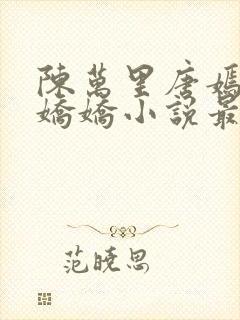 陳萬里唐嫣
嬌嬌小說最
范曉思